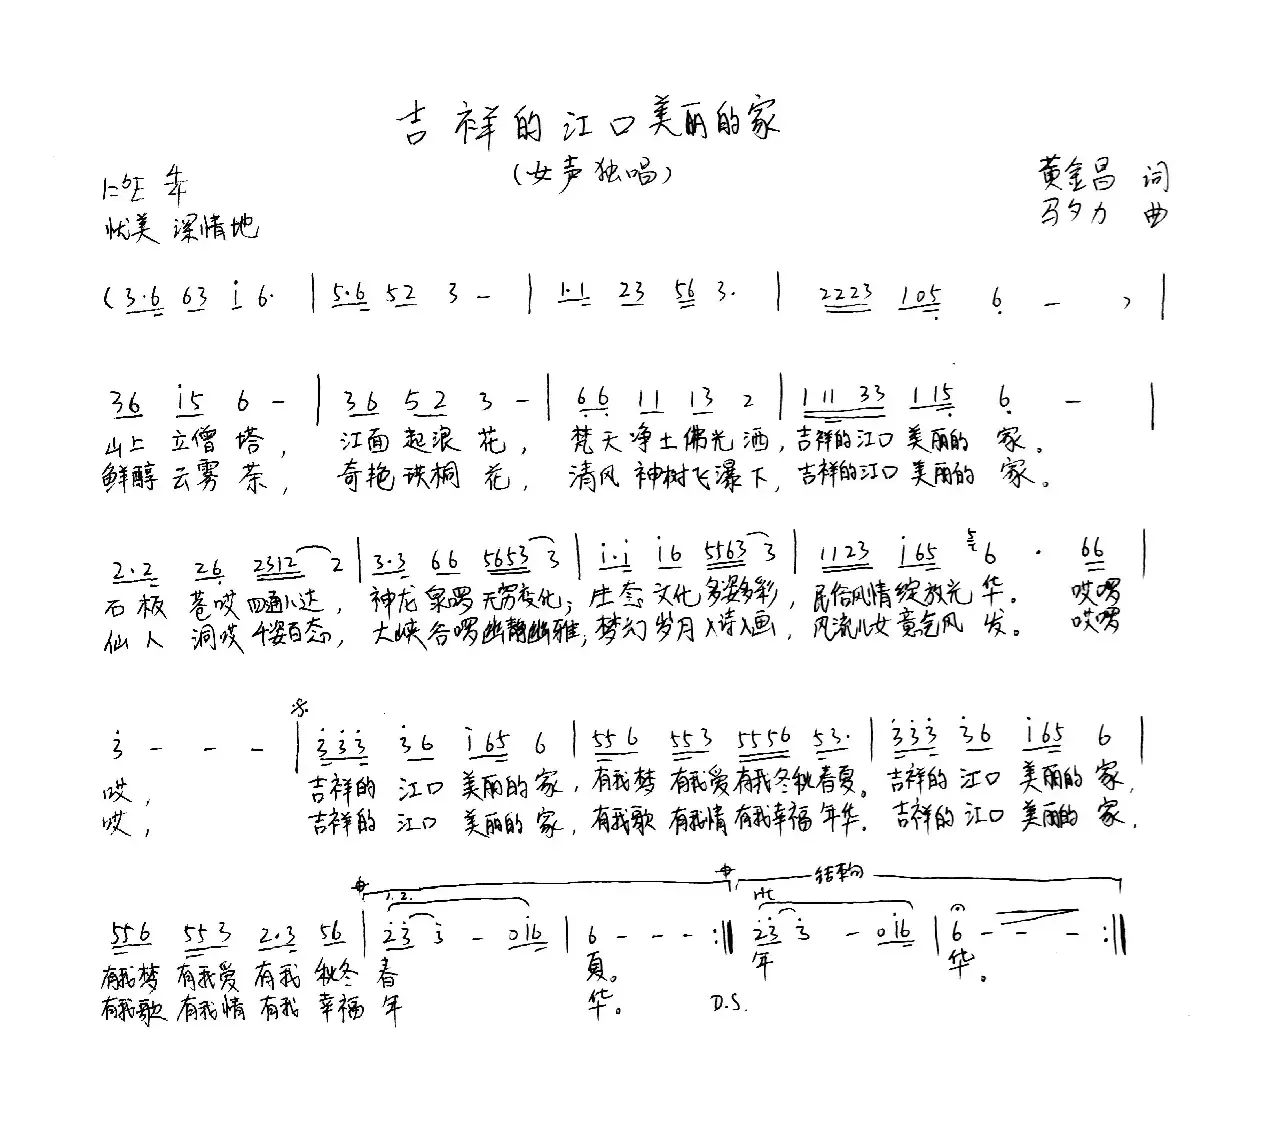 吉祥的江口美丽的家
(女声独唱)
1=bE 4/4
黄金昌 词
优美 深情地
马夕力 曲
(3·6 63 i 6· | 5·6 52 3 - | 1·1 23 56 3· | 2223 105 6 - ) |
36 i5 6 - | 36 52 3 - | 66 11 13 2 | 111 33 115 6 - |
山上 立僧塔, 江面 起浪 花, 梵天净土佛光 洒, 吉祥的江口 美丽的 家。
鲜醇 云雾 茶, 奇艳 珙桐 花, 清风 神树飞瀑下, 吉祥的江口 美丽的 家。
2·2 26 2312 2 | 3·3 66 5653 3 | i·i i6 5563 3 | 1123 i65 5 6 · 66 |
石板 苍哎 四通八达, 神龙 泉啰 无穷变化; 生态 文化 多姿多彩, 民俗风情绽放光 华。 哎啰
仙人 洞哎 千姿百态, 大峡 谷啰幽静幽雅; 梦幻 岁月 入诗入画, 风流儿女意气风 发。 哎啰
3 - - - | 333 36 i65 6 | 556 553 5556 53· | 333 36 i65 6 |
哎, 吉祥的 江口 美丽的 家, 有我梦 有我爱有我冬秋春夏。 吉祥的 江口 美丽的 家,
哎, 吉祥的 江口 美丽的 家, 有我歌 有我情有我幸福 年华. 吉祥的 江口 美丽的 家,
1. 2. 结束句
rit
556 553 2·3 56 | 23 3 - 0i6 | 6 - - - :|| 23 3 - 0i6 | 6 - - - :||
有我梦 有我爱 有我 秋冬 春 夏。 年 华。
有我歌 有我情 有我 幸福 年 华。 D.S.